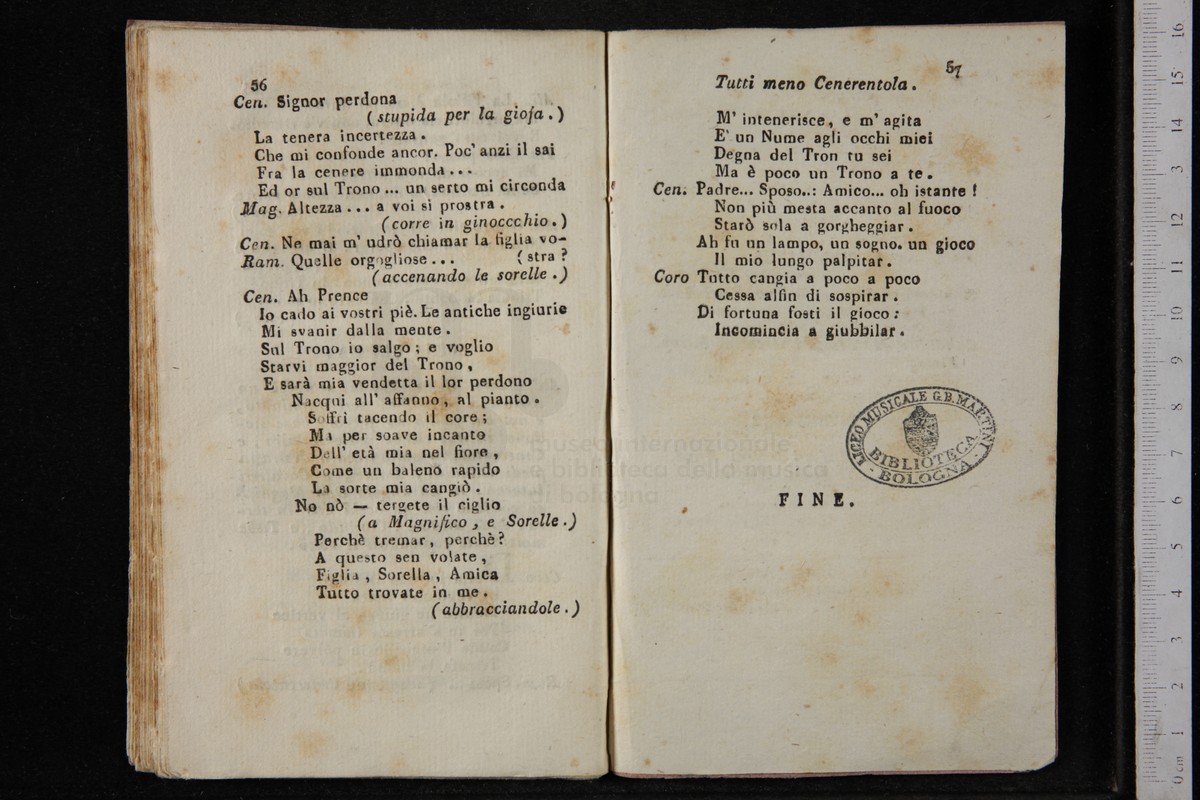 56
Cen. Signor perdona
(stupida per la gioja.)
La tenera incertezza.
Che mi confonde ancor. Poc' anzi il sai
Fra la cenere immonda...
Ed or sul Trono... un serto mi circonda
Mag. Altezza... a voi si prostra.
(corre in ginoccchio.)
Cen. Ne mai m' udrò chiamar la figlia vo-
Ram. Quelle orgogliose... (stra?
(accenando le sorelle.)
Cen. Ah Prence
Io cado ai vostri piè. Le antiche ingiurie
Mi svanir dalla mente.
Sul Trono io salgo; e voglio
Starvi maggior del Trono,
E sarà mia vendetta il lor perdono
Nacqui all' affanno, al pianto.
Soffrì tacendo il core;
Ma per soave incanto
Dell' età mia nel fiore,
Come un baleno rapido
La sorte mia cangiò.
No nò — tergete il ciglio
(a Magnifico, e Sorelle.)
Perchè tremar, perchè?
A questo sen volate,
Figlia, Sorella, Amica
Tutto trovate in me.
(abbracciandole.)
57
Tutti meno Cenerentola.
M' intenerisce, e m' agita
E' un Nume agli occhi miei
Degna del Tron tu sei
Ma è poco un Trono a te.
Cen. Padre... Sposo..: Amico... oh istante!
Non più mesta accanto al fuoco
Starò sola a gorgheggiar.
Ah fu un lampo, un sogno. un gioco
Il mio lungo palpitar.
Coro Tutto cangia a poco a poco
Cessa alfin di sospirar.
Di fortuna fosti il gioco:
Incomincia a giubbilar.
LICEO MUSICALE G.B. MARTINI
BIBLIOTECA
- BOLOGNA -
FINE.
museo internazionale
e biblioteca della musica
di bologna
0 cm 1 2 3 4 5 6 7 8 9 10 11 12 13 14 15 16